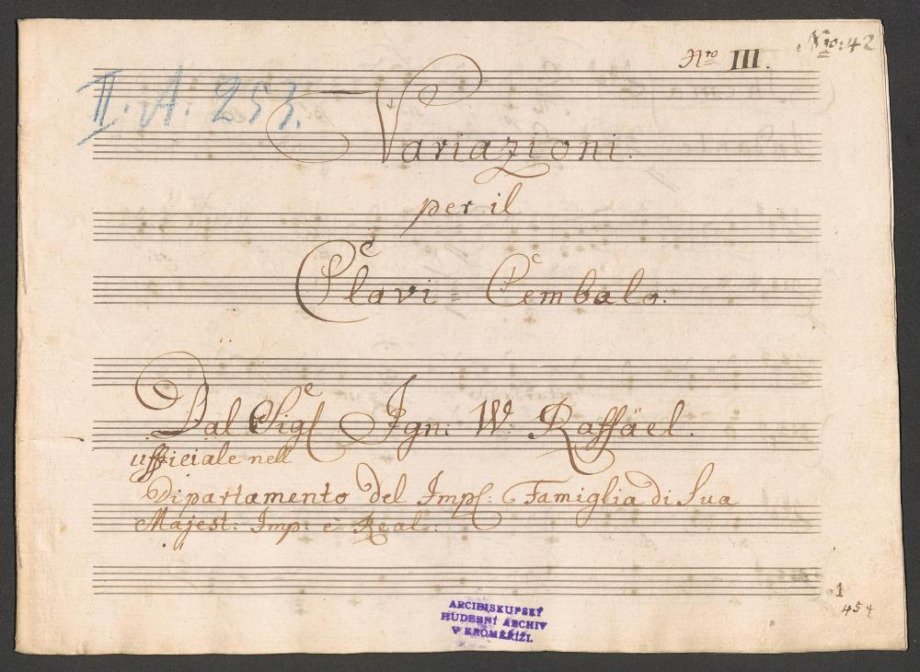 Nro III.
Nro: 42
II. A. 253.
Variazioni.
per il
Clavi = Cembalo.
Dal Sigre Ign: W. Raffael.
uffieiale nell
Dipartamento del Impl: Famiglia di Sua
Majest: Imp: è Real:
1
ARCIBISKUPSKÝ
HUDEBNÍ ARCHIV
V KROMĚŘÍŽI.